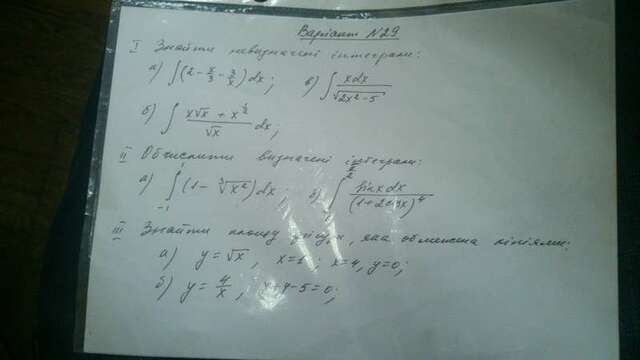 Варіант N29
I Знайти невизначені інтеграли:
а) ∫(2 - x/3 - 3/x)dx; в) ∫ xdx/√(2x² - 5)
б) ∫ (x√x + x^(1/2))/√x dx;
II Обчислити визначені інтеграли:
а) ∫₋₁¹ (1 - ³√x²)dx; б) ∫ sinxdx/(1+2cosx)⁴
III Знайти площу фігури, яка обмежена лініями:
а) y = √x, x=1, x=4, y=0;
б) y = 4/x, x+y-5=0;